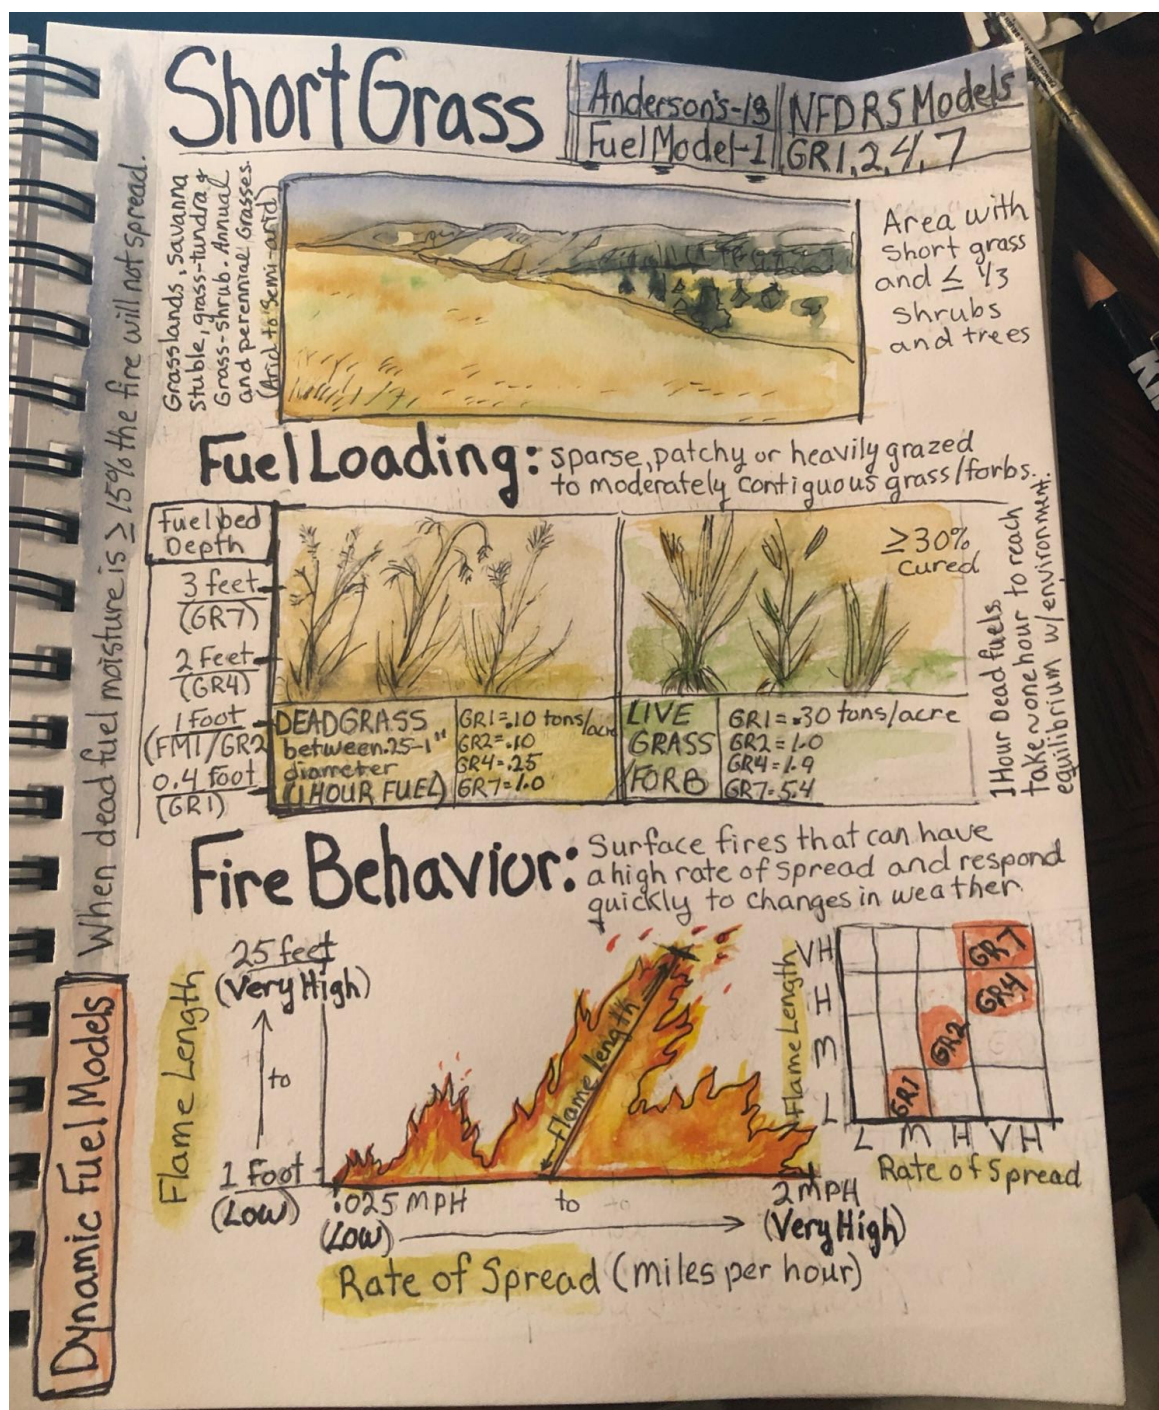 Short Grass
Anderson's-13
Fuel Model-1
NFDRS Models
GR1,2,4,7
Grasslands, Savanna
Stuble, grass-tundra &
Grass-Shrub. Annual
and perennial Grasses.
(Arid to Semi-arid)
Area with
Short grass
and ≤ 1/3
Shrubs
and trees
When dead fuel moisture is ≥ 15% the fire will not spread.
Dynamic Fuel Models
Fuel Loading:
sparse, patchy or heavily grazed
to moderately contiguous grass/forbs.
Fuel bed
Depth
3 feet
(GR7)
2 Feet
(GR4)
1 Foot
(FM1/GR2
0.4 foot
(GR1)
≥30%
cured
DEAD GRASS
between .25-1"
diameter
(1 HOUR FUEL)
GR1=.10 tons/acre
GR2=.10
GR4=.25
GR7=1.0
LIVE
GRASS
/FORB
GR1=.30 tons/acre
GR2=1.0
GR4=1.9
GR7=5.4
1 Hour Dead fuels
take ~ one hour to reach
equilibrium w/environment.
Fire Behavior:
Surface fires that can have
a high rate of spread and respond
quickly to changes in weather.
Flame Length
25 feet
(Very High)
to
1 Foot
(Low)
Flame length
.025 MPH
(Low)
to
2 MPH
(Very High)
Rate of Spread (miles per hour)
Flame Length
VH
H
M
L
GR7
GR4
GR2
GR1
L M H VH
Rate of Spread